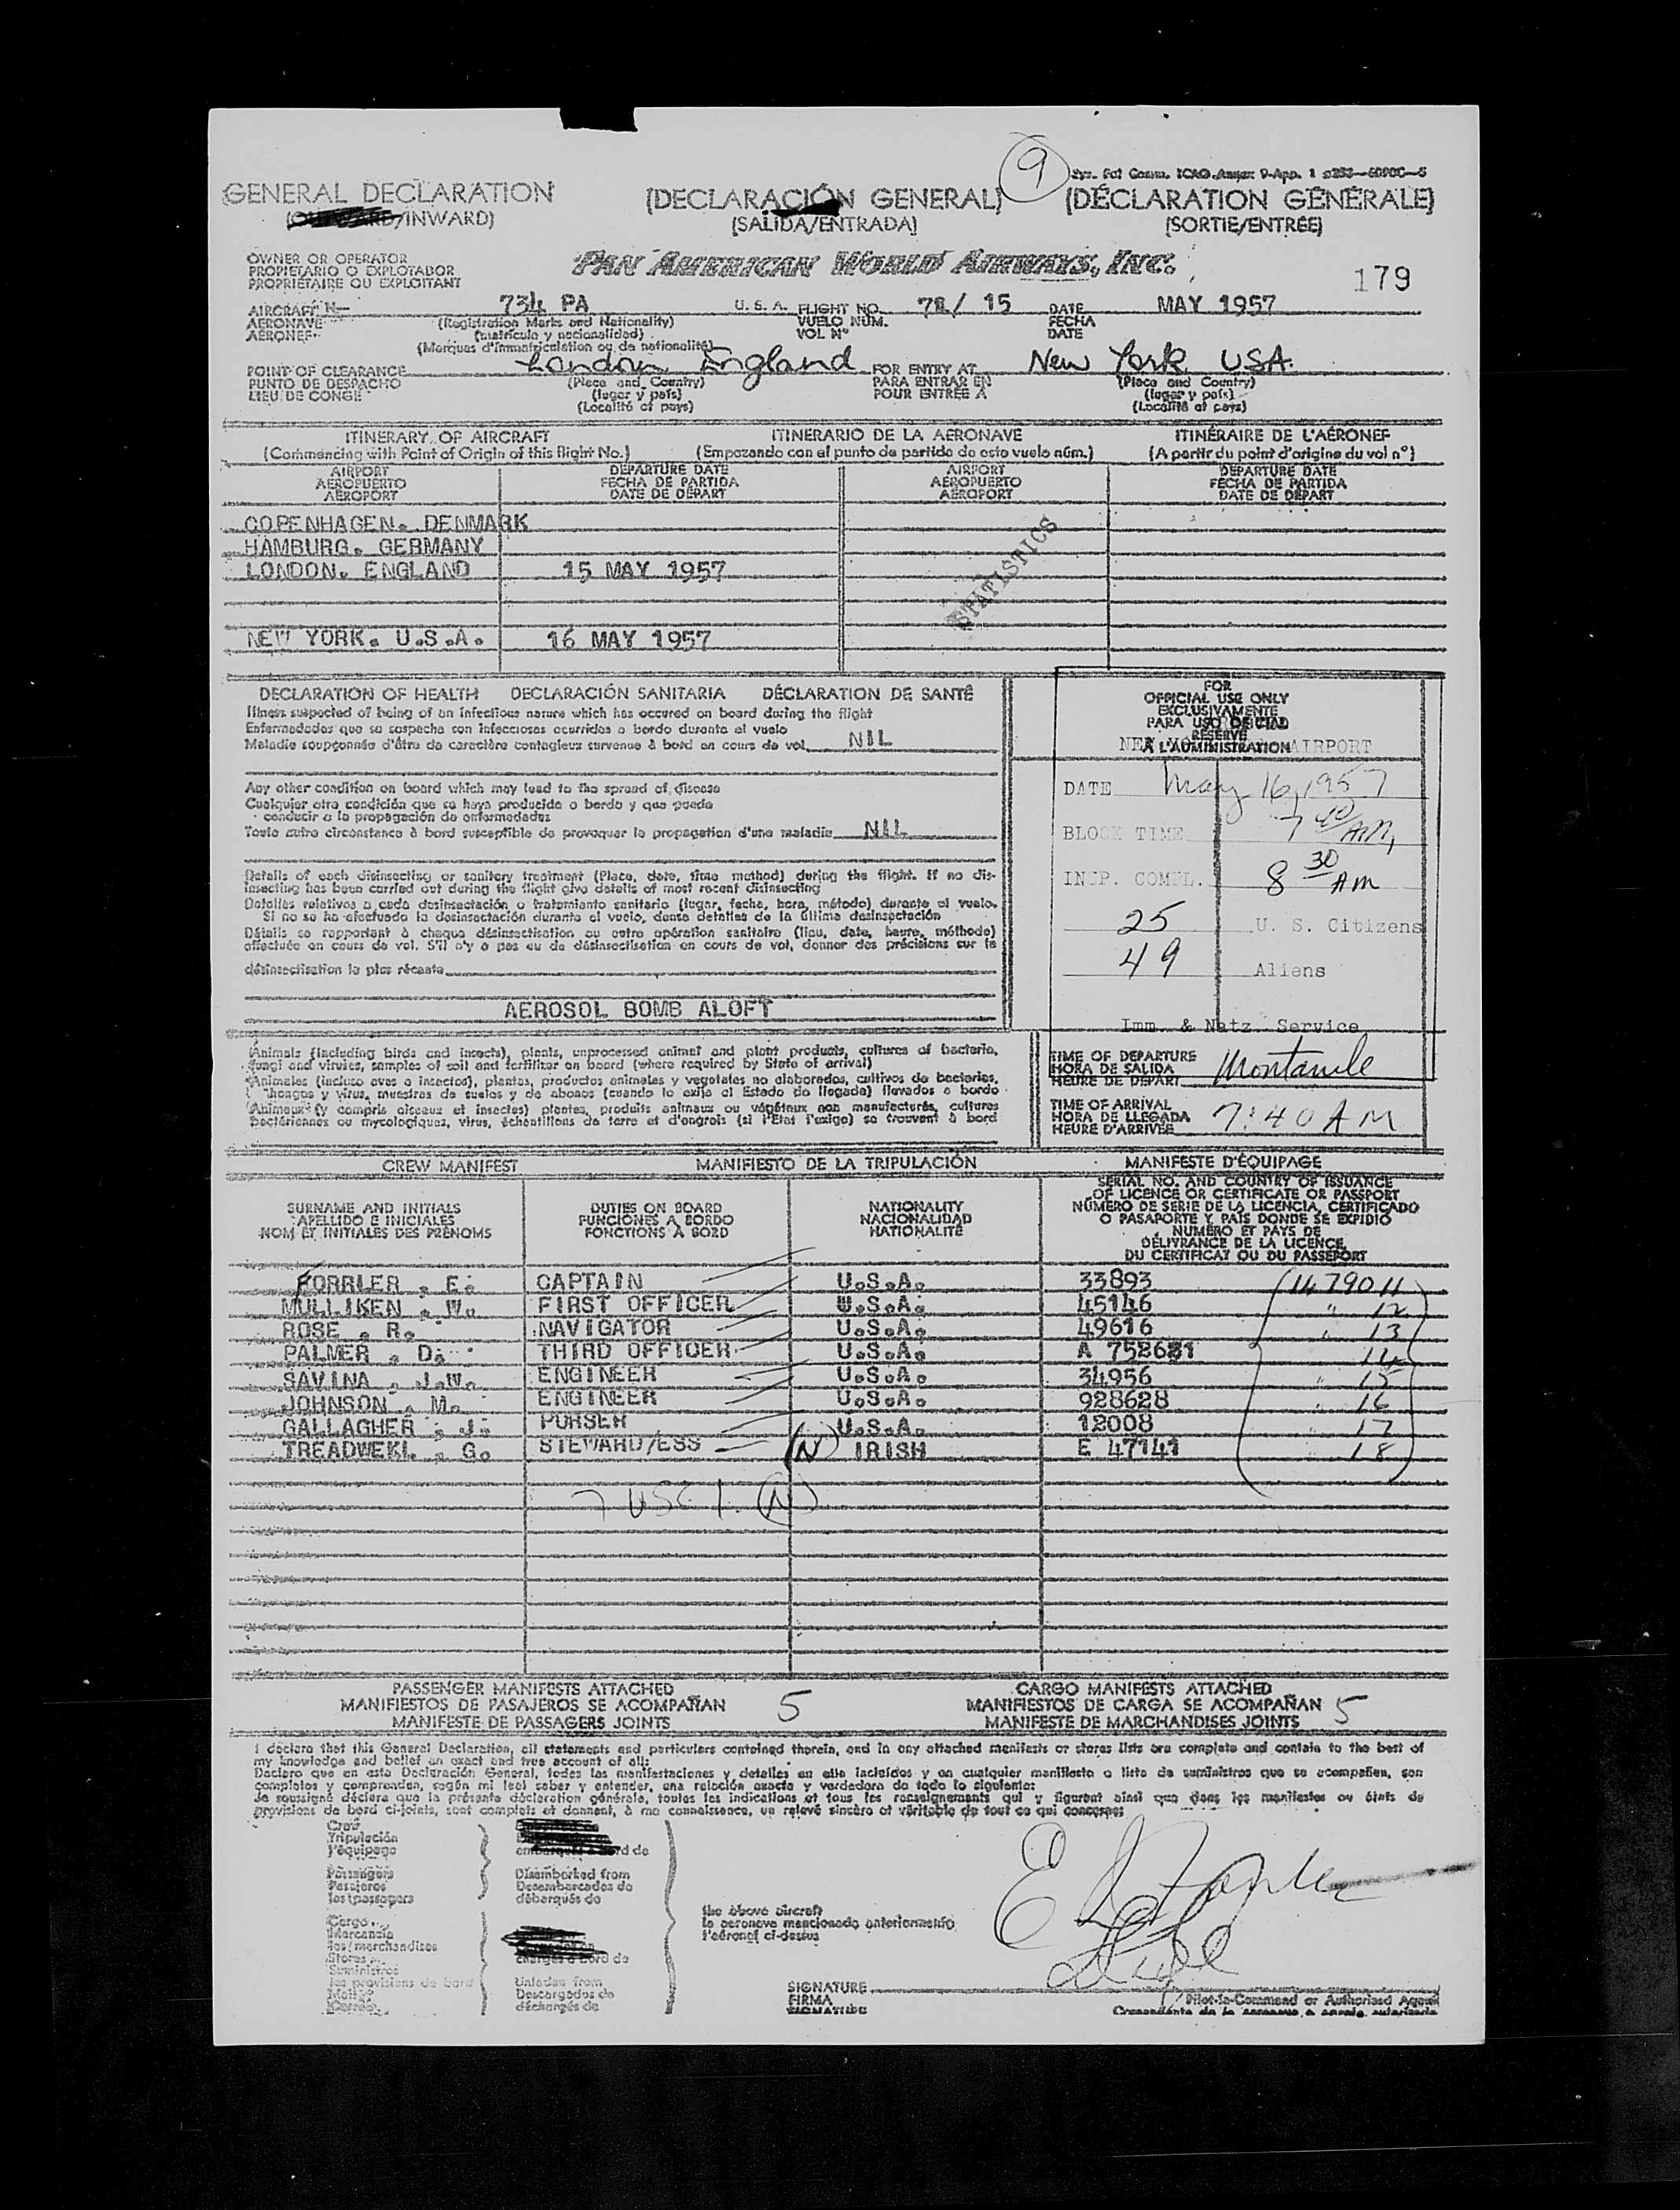 9
GENERAL DECLARATION (DECLARACIÓN GENERAL) (DÉCLARATION GÉNÉRALE)
/INWARD) (SALIDA/ENTRADA) (SORTIE/ENTRÉE)
OWNER OR OPERATOR
PROPIETARIO O EXPLOTADOR
PROPRIÉTAIRE OU EXPLOITANT
PAN AMERICAN WORLD AIRWAYS, INC.
179
AIRCRAFT N- 734 PA U. S. A. FLIGHT NO. 72/ 15 DATE MAY 1957
AERONAVE (Registration Marks and Nationality) VUELO NÚM. FECHA
AÉRONEF (matrícula y nacionalidad) VOL N° DATE
(Marques d'immatriculation ou de nationalité)
POINT OF CLEARANCE London England FOR ENTRY AT New York USA.
PUNTO DE DESPACHO (Place and Country) PARA ENTRAR EN (Place and Country)
LIEU DE CONGÉ (lugar y país) POUR ENTRÉE À (lugar y país)
(Localité et pays) (Localité et pays)
ITINERARY OF AIRCRAFT ITINERARIO DE LA AERONAVE ITINÉRAIRE DE L'AÉRONEF
(Commencing with Point of Origin of this flight No.) (Empezando con el punto de partida de esto vuelo núm.) (A partir du point d'origine du vol n°)
AIRPORT DEPARTURE DATE AIRPORT DEPARTURE DATE
AEROPUERTO FECHA DE PARTIDA AEROPUERTO FECHA DE PARTIDA
AÉROPORT DATE DE DÉPART AÉROPORT DATE DE DÉPART
COPENHAGEN. DENMARK
HAMBURG. GERMANY
LONDON. ENGLAND 15 MAY 1957
STATISTICS
NEW YORK. U.S.A. 16 MAY 1957
DECLARATION OF HEALTH DECLARACIÓN SANITARIA DÉCLARATION DE SANTÉ
Illness suspected of being of an infectious nature which has occured on board during the flight
Enfermedades que se sospecha son infecciosas ocurridas a bordo durante el vuelo
Maladie soupçonnée d'être de caractère contagieux survenue à bord en cours de vol NIL
Any other condition on board which may lead to the spread of disease
Cualquier otra condición que se haya producido a bordo y que pueda
conducir a la propagación de enfermedades
Toute autre circonstance à bord susceptible de provoquer la propagation d'une maladie NIL
Details of each disinsecting or sanitary treatment (Place, date, time method) during the flight. If no dis-
insecting has been carried out during the flight give details of most recent disinsecting
Detalles relativos a cada desinsectación o tratamiento sanitario (lugar, fecha, hora, método) durante el vuelo.
Si no se ha efectuado la desinsectación durante el vuelo, dense detalles de la última desinsectación
Détails se rapportant à chaque désinsectisation ou autre opération sanitaire (lieu, date, heure, méthode)
effectuée en cours de vol. S'il n'y a pas eu de désinsectisation en cours de vol, donner des précisions sur la
désinsectisation la plus récente
AEROSOL BOMB ALOFT
FOR
OFFICIAL USE ONLY
EXCLUSIVAMENTE
PARA USO OFICIAL
RÉSERVÉ
À L'ADMINISTRATION
AIRPORT
DATE May 16, 1957
BLOCK TIME 7 40 AM,
INSP. COMPL. 8 30 AM
25 U. S. Citizens
49 Aliens
Imm. & Natz. Service
Animals (including birds and insects), plants, unprocessed animal and plant products, cultures of bacteria,
fungi and viruses, samples of soil and fertilizer on board (where required by State of arrival)
Animales (incluso aves o insectos), plantas, productos animales y vegetales no elaborados, cultivos de bacterias,
hongos y virus, muestras de suelos y de abonos (cuando lo exija el Estado de llegada) llevados a bordo
Animaux (y compris oiseaux et insectes) plantes, produits animaux ou végétaux non manufacturés, cultures
bactériennes ou mycologiques, virus, échantillons de terre et d'engrais (si l'Etat l'exige) se trouvent à bord
TIME OF DEPARTURE
HORA DE SALIDA
HEURE DE DÉPART
TIME OF ARRIVAL
HORA DE LLEGADA 7:40 AM
HEURE D'ARRIVÉE
CREW MANIFEST MANIFIESTO DE LA TRIPULACIÓN MANIFESTE D'ÉQUIPAGE
SURNAME AND INITIALS
APELLIDO E INICIALES
NOM ET INITIALES DES PRÉNOMS
DUTIES ON BOARD
FUNCIONES A BORDO
FONCTIONS À BORD
NATIONALITY
NACIONALIDAD
NATIONALITÉ
SERIAL NO. AND COUNTRY OF ISSUANCE
OF LICENCE OR CERTIFICATE OR PASSPORT
NÚMERO DE SERIE DE LA LICENCIA, CERTIFICADO
O PASAPORTE Y PAÍS DONDE SE EXPIDIÓ
NUMÉRO ET PAYS DE
DÉLIVRANCE DE LA LICENCE,
DU CERTIFICAT OU DU PASSEPORT
FORRLER . E. CAPTAIN U.S.A. 33893 (1479011
MULLIKEN . W. FIRST OFFICER U.S.A. 45146 " 12
ROSE . R. NAVIGATOR U.S.A. 49616 " 13
PALMER . D. THIRD OFFICER U.S.A. A 752681 14
SAVINA . J.W. ENGINEER U.S.A. 34956 " 15
JOHNSON . M. ENGINEER U.S.A. 928628 " 16
GALLAGHER . J. PURSER U.S.A. 12008 " 17
TREADWEKL . G. STEWARD/ESS (N) IRISH E 47141 " 18
7 USC 1. (N)
PASSENGER MANIFESTS ATTACHED CARGO MANIFESTS ATTACHED
MANIFIESTOS DE PASAJEROS SE ACOMPAÑAN 5 MANIFIESTOS DE CARGA SE ACOMPAÑAN 5
MANIFESTE DE PASSAGERS JOINTS MANIFESTE DE MARCHANDISES JOINTS
I declare that this General Declaration, all statements and particulars contained therein, and in any attached manifests or stores lists are complete and contain to the best of
my knowledge and belief an exact and true account of all:
Declaro que en esta Declaración General, todas las manifestaciones y detalles en ella incluidos y en cualquier manifiesto o lista de suministros que se acompañen, son
completos y comprenden, según mi leal saber y entender, una relación exacta y verdadera de todo lo siguiente:
Je soussigné déclare que la présente déclaration générale, toutes les indications et tous les renseignements qui y figurent ainsi que dans les manifestes ou états de
provisions de bord ci-joints, sont complets et donnent, à ma connaissance, un relevé sincère et véritable de tout ce qui concerne:
Crew
Tripulación
l'équipage
Passengers Disembarked from
Pasajeros Desembarcados de
les passagers débarqués de
the above aircraft
la aeronave mencionada anteriormente
l'aéronef ci-dessus
Cargo
Mercancía
les marchandises
Stores
Suministros
les provisions de bord Unladen from
Descargados de
déchargés de
SIGNATURE
FIRMA
SIGNATURE
Pilot-in-Command or Authorised Agent